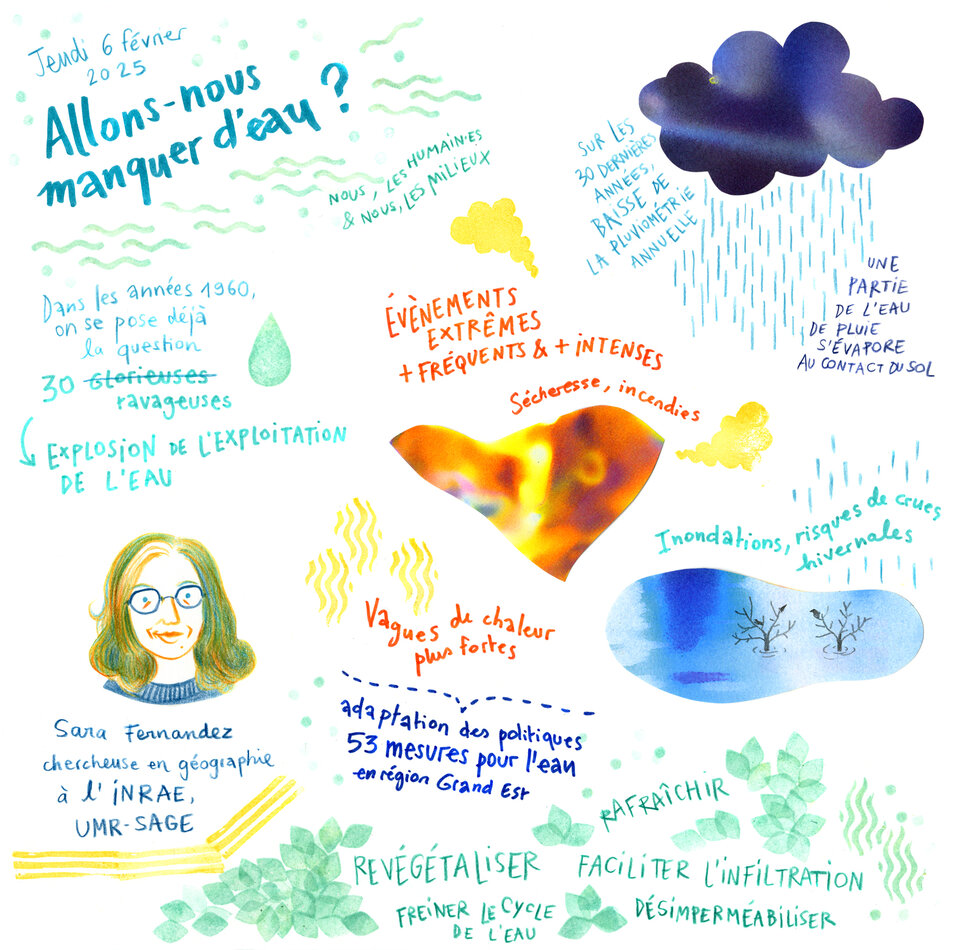 Jeudi 6 février
2025
Allons-nous
manquer d'eau ?
NOUS, LES HUMAIN·ES
& NOUS, LES MILIEUX
SUR LES
30 DERNIÈRES
ANNÉES,
BAISSE DE
LA PLUVIOMÉTRIE
ANNUELLE
UNE
PARTIE
DE L'EAU
DE PLUIE
S'ÉVAPORE
AU CONTACT DU SOL
Dans les années 1960,
on se pose déjà
la question
30 Glorieuses
ravageuses
EXPLOSION DE L'EXPLOITATION
DE L'EAU
ÉVÈNEMENTS
EXTRÊMES
+ FRÉQUENTS & + INTENSES
Sécheresse, incendies
Inondations, risques de crues
hivernales
Vagues de chaleur
plus fortes
adaptation des politiques
53 mesures pour l'eau
en région Grand Est
Sara Fernandez
chercheuse en géographie
à l'INRAE,
UMR-SAGE
RAFRAÎCHIR
REVÉGÉTALISER
FACILITER L'INFILTRATION
FREINER LE CYCLE
DE L'EAU
DÉSIMPERMÉABILISER